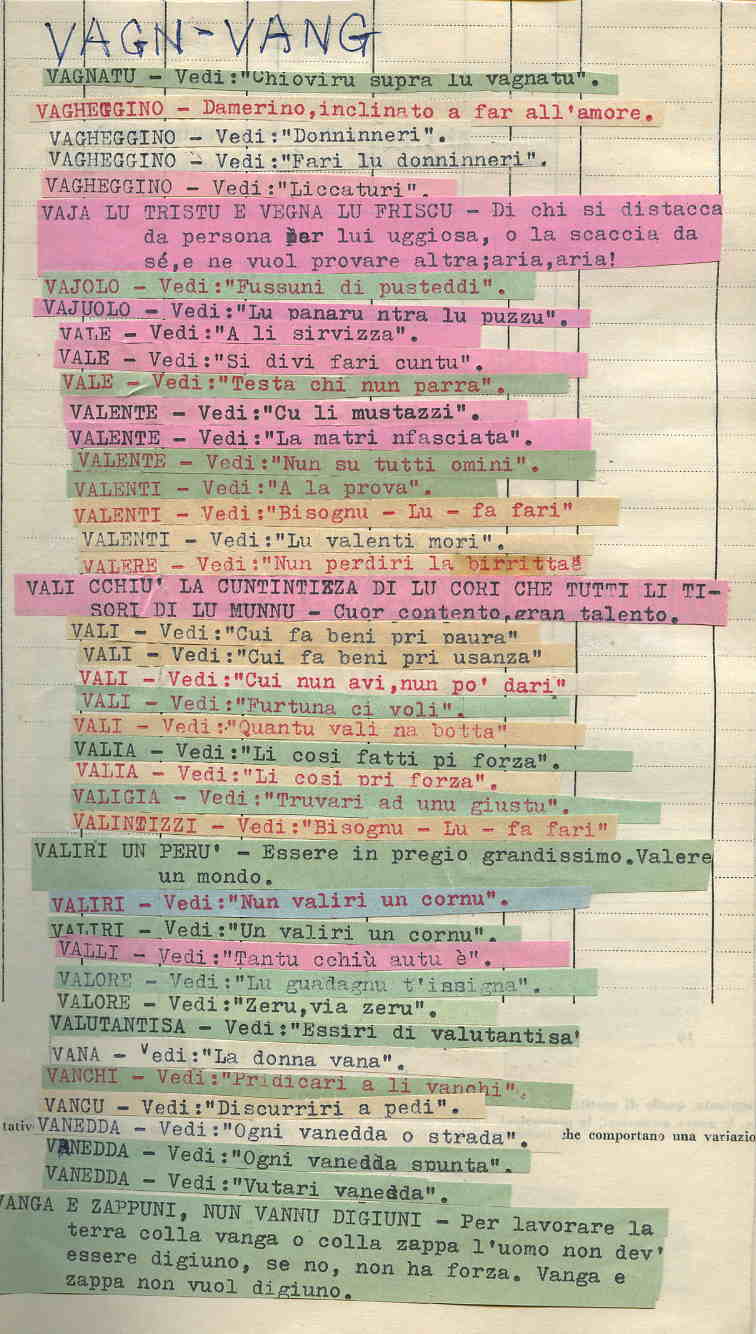 VAGN-VANG
VAGNATU - Vedi:"Chioviru supra lu vagnatu".
VAGHEGGINO - Damerino,inclinato a far all'amore.
VAGHEGGINO - Vedi:"Donninneri".
VAGHEGGINO - Vedi:"Fari lu donninneri".
VAGHEGGINO - Vedi:"Liccaturi".
VAJA LU TRISTU E VEGNA LU FRISCU - Di chi si distacca
da persona per lui uggiosa, o la scaccia da
sé,e ne vuol provare altra;aria,aria!
VAJOLO - Vedi:"Fussuni di pusteddi".
VAJUOLO - Vedi:"Lu panaru ntra lu puzzu".
VALE - Vedi:"A li sirvizza".
VALE - Vedi:"Si divi fari cuntu".
VALE - Vedi:"Testa chi nun parra".
VALENTE - Vedi:"Cu li mustazzi".
VALENTE - Vedi:"La matri nfasciata".
VALENTE - Vedi:"Nun su tutti omini".
VALENTI - Vedi:"A la prova".
VALENTI - Vedi:"Bisognu - Lu - fa fari"
VALENTI - Vedi:"Lu valenti mori".
VALERE - Vedi:"Nun perdiri la birritta"
VALI CCHIU' LA CUNTINTIZZA DI LU CORI CHE TUTTI LI TI-
SORI DI LU MUNNU - Cuor contento,gran talento.
VALI - Vedi:"Cui fa beni pri paura"
VALI - Vedi:"Cui fa beni pri usanza"
VALI - Vedi:"Cui nun avi,nun po' dari"
VALI - Vedi:"Furtuna ci voli".
VALI - Vedi:"Quantu vali na botta"
VALIA - Vedi:"Li cosi fatti pi forza".
VALIA - Vedi:"Li cosi pri forza".
VALIGIA - Vedi:"Truvari ad unu giustu".
VALINTIZZI - Vedi:"Bisognu - Lu - fa fari"
VALIRI UN PERU' - Essere in pregio grandissimo.Valere
un mondo.
VALIRI - Vedi:"Nun valiri un cornu".
VALIRI - Vedi:"Un valiri un cornu".
VALLI - Vedi:"Tantu cchiù autu è".
VALORE - Vedi:"Lu guadagnu t'issigna".
VALORE - Vedi:"Zeru,via zeru".
VALUTANTISA - Vedi:"Essiri di valutantisa'
VANA - Vedi:"La donna vana".
VANCHI - Vedi:"Pridicari a li vanchi".
VANCU - Vedi:"Discurriri a pedi".
tativ VANEDDA - Vedi:"Ogni vanedda o strada". he comportano una variazio
VANEDDA - Vedi:"Ogni vanedda spunta".
VANEDDA - Vedi:"Vutari vanedda".
VANGA E ZAPPUNI, NUN VANNU DIGIUNI - Per lavorare la
terra colla vanga o colla zappa l'uomo non dev'
essere digiuno, se no, non ha forza. Vanga e
zappa non vuol digiuno.